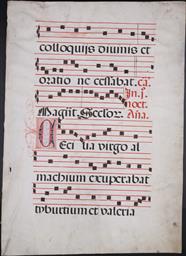 colloquijs diuinis et
oratio ne cessabat. ca.
In. j.
noct.
Magnt. Seclor. Aña.
Ceci lia virgo al
machium exuperabat
tyburtium et valeria